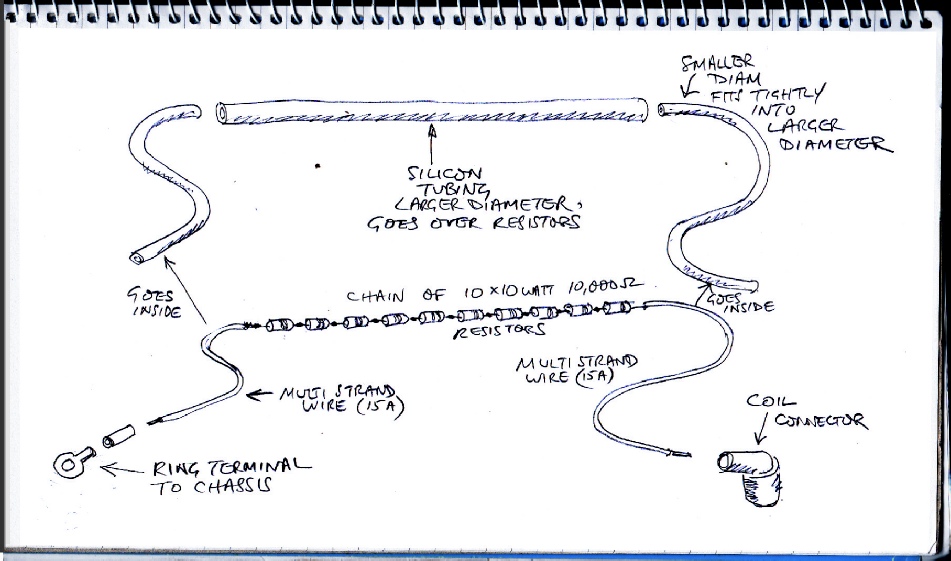 SMALLER
DIAM
FITS TIGHTLY
INTO
LARGER
DIAMETER
SILICON
TUBING,
LARGER DIAMETER,
GOES OVER RESISTORS
GOES
INSIDE
CHAIN OF 10 x 10 WATT 10,000Ω
RESISTORS
GOES
INSIDE
MULTI STRAND
WIRE (15A)
MULTI STRAND
WIRE (15A)
COIL
CONNECTOR
RING TERMINAL
TO CHASSIS